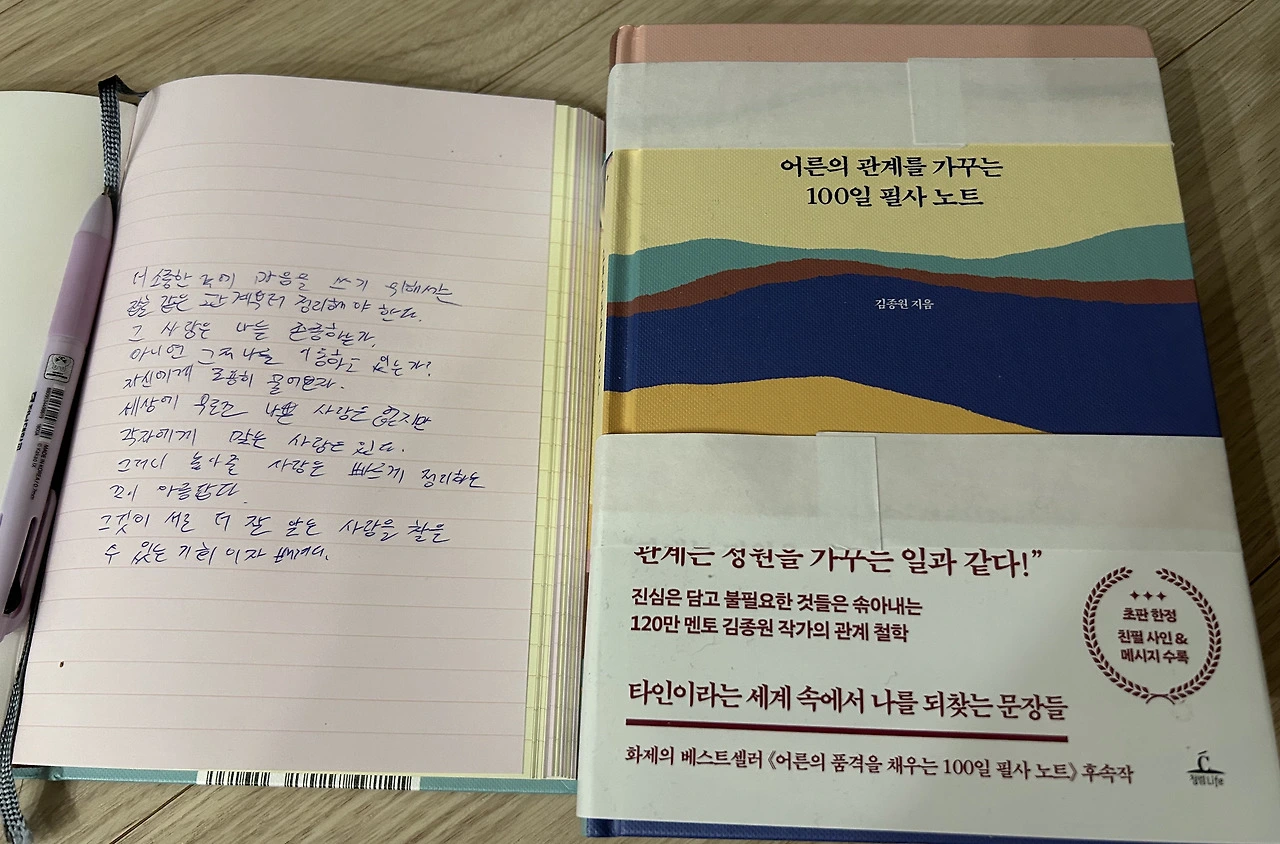 더 소중한 곳에 마음을 쓰기 위해서는
같은 관계부터 정리해야 한다.
그 사람은 나를 존중하는가,
아니면 그저 나를 이용하고 있는가?
자신에게 조용히 물어보라.
세상에 무조건 나쁜 사람은 없지만
각자에게 맞는 사람은 있다.
그러니 놓아줄 사람은 빠르게 정리하는
것이 아름답다.
그것이 서로 더 잘 맞는 사람을 찾을
수 있는 기회이자 배려다.
어른의 관계를 가꾸는
100일 필사 노트
김종원 지음
관계는 정원을 가꾸는 일과 같다!”
진심은 담고 불필요한 것들은 솎아내는
120만 멘토 김종원 작가의 관계 철학
초판 한정
친필 사인 &
메시지 수록
타인이라는 세계 속에서 나를 되찾는 문장들
화제의 베스트셀러 《어른의 품격을 채우는 100일 필사 노트》 후속작
청림Life